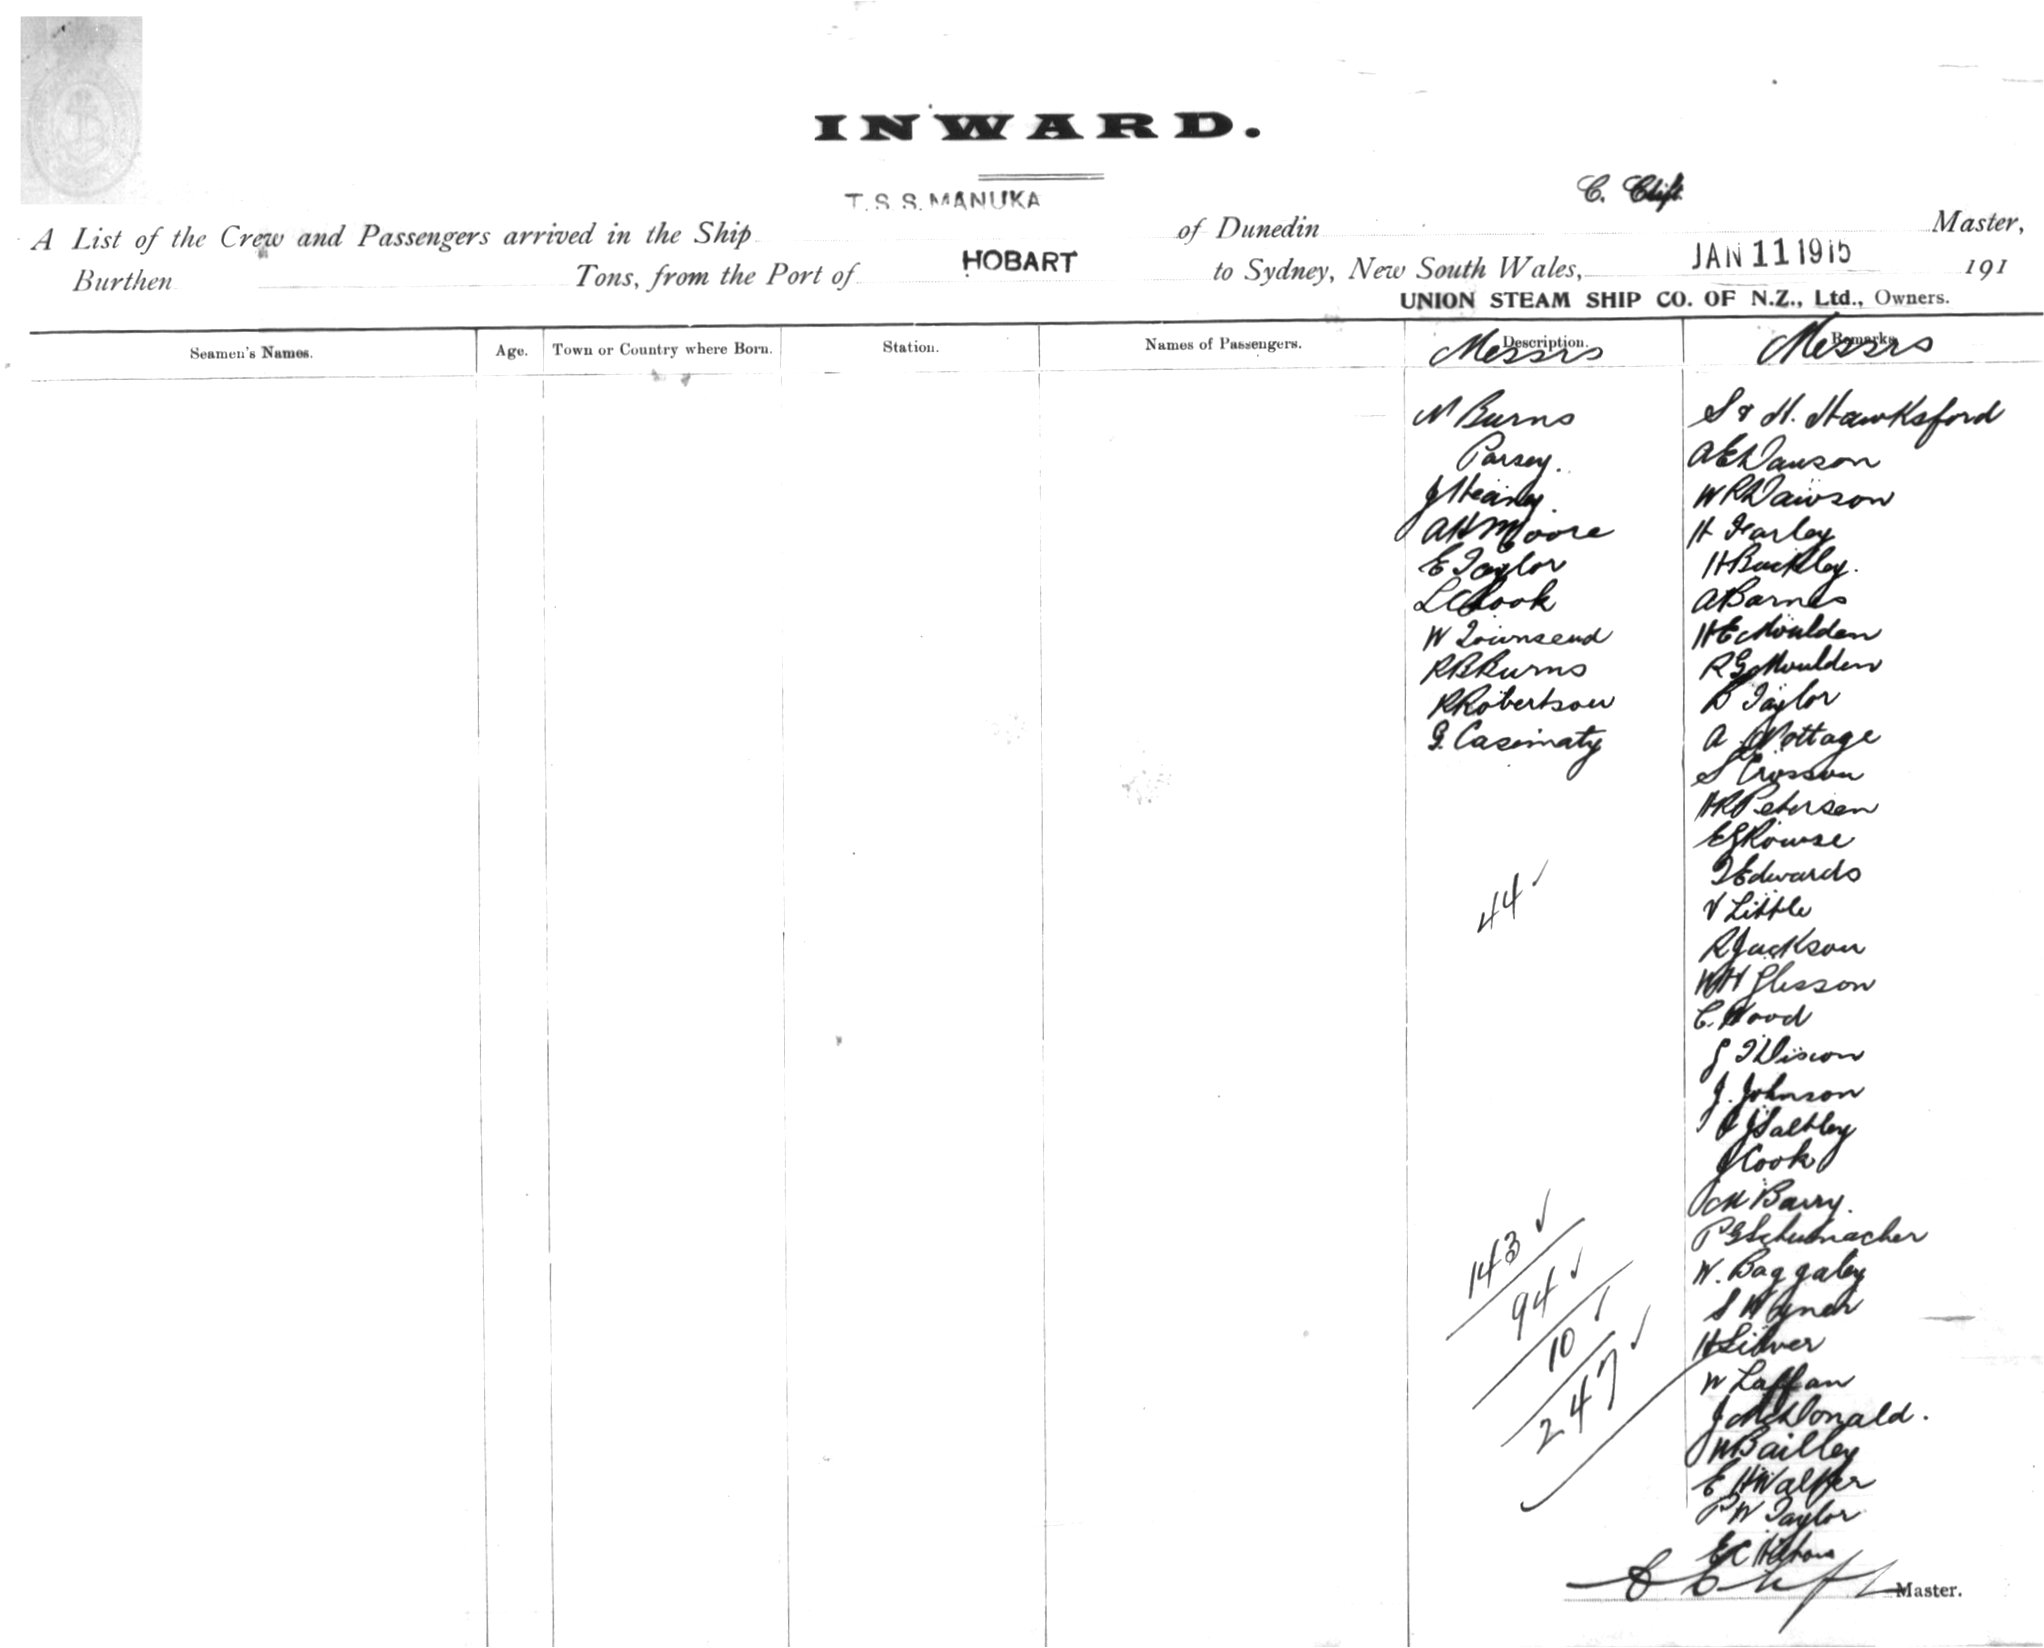 INWARD.
T.S.S. MANUKA
C. Clift
A List of the Crew and Passengers arrived in the Ship of Dunedin Master,
Burthen Tons, from the Port of HOBART to Sydney, New South Wales, JAN 11 1915 191
UNION STEAM SHIP CO. OF N.Z., Ltd., Owners.
Seamen's Names. Age. Town or Country where Born. Station. Names of Passengers. Description. Remarks.
Messrs Messrs
N Burns
Parsey.
J Heaney
A H Moore
E Taylor
L C Cook
W Townsend
R B Burns
R Robertson
G. Casimaty
44
143
94
10
247
S & H. Hawksford
A E Dawson
W R Dawson
H Farley
H Buckley.
A Barnes
H E Moulden
R G Moulden
D Taylor
A Nottage
S Crosson
H R Petersen
E G Rowse
T Edwards
V Little
R Jackson
W H Glesson
C. Wood
G T Dixon
J. Johnson
J Saltley
J Cook
M Barry.
P G Schumacher
W. Baggaley
S Wynch
H Silver
W Laffan
J McDonald.
W Bailley
E H Walker
P W Taylor
E C
C Clift Master.